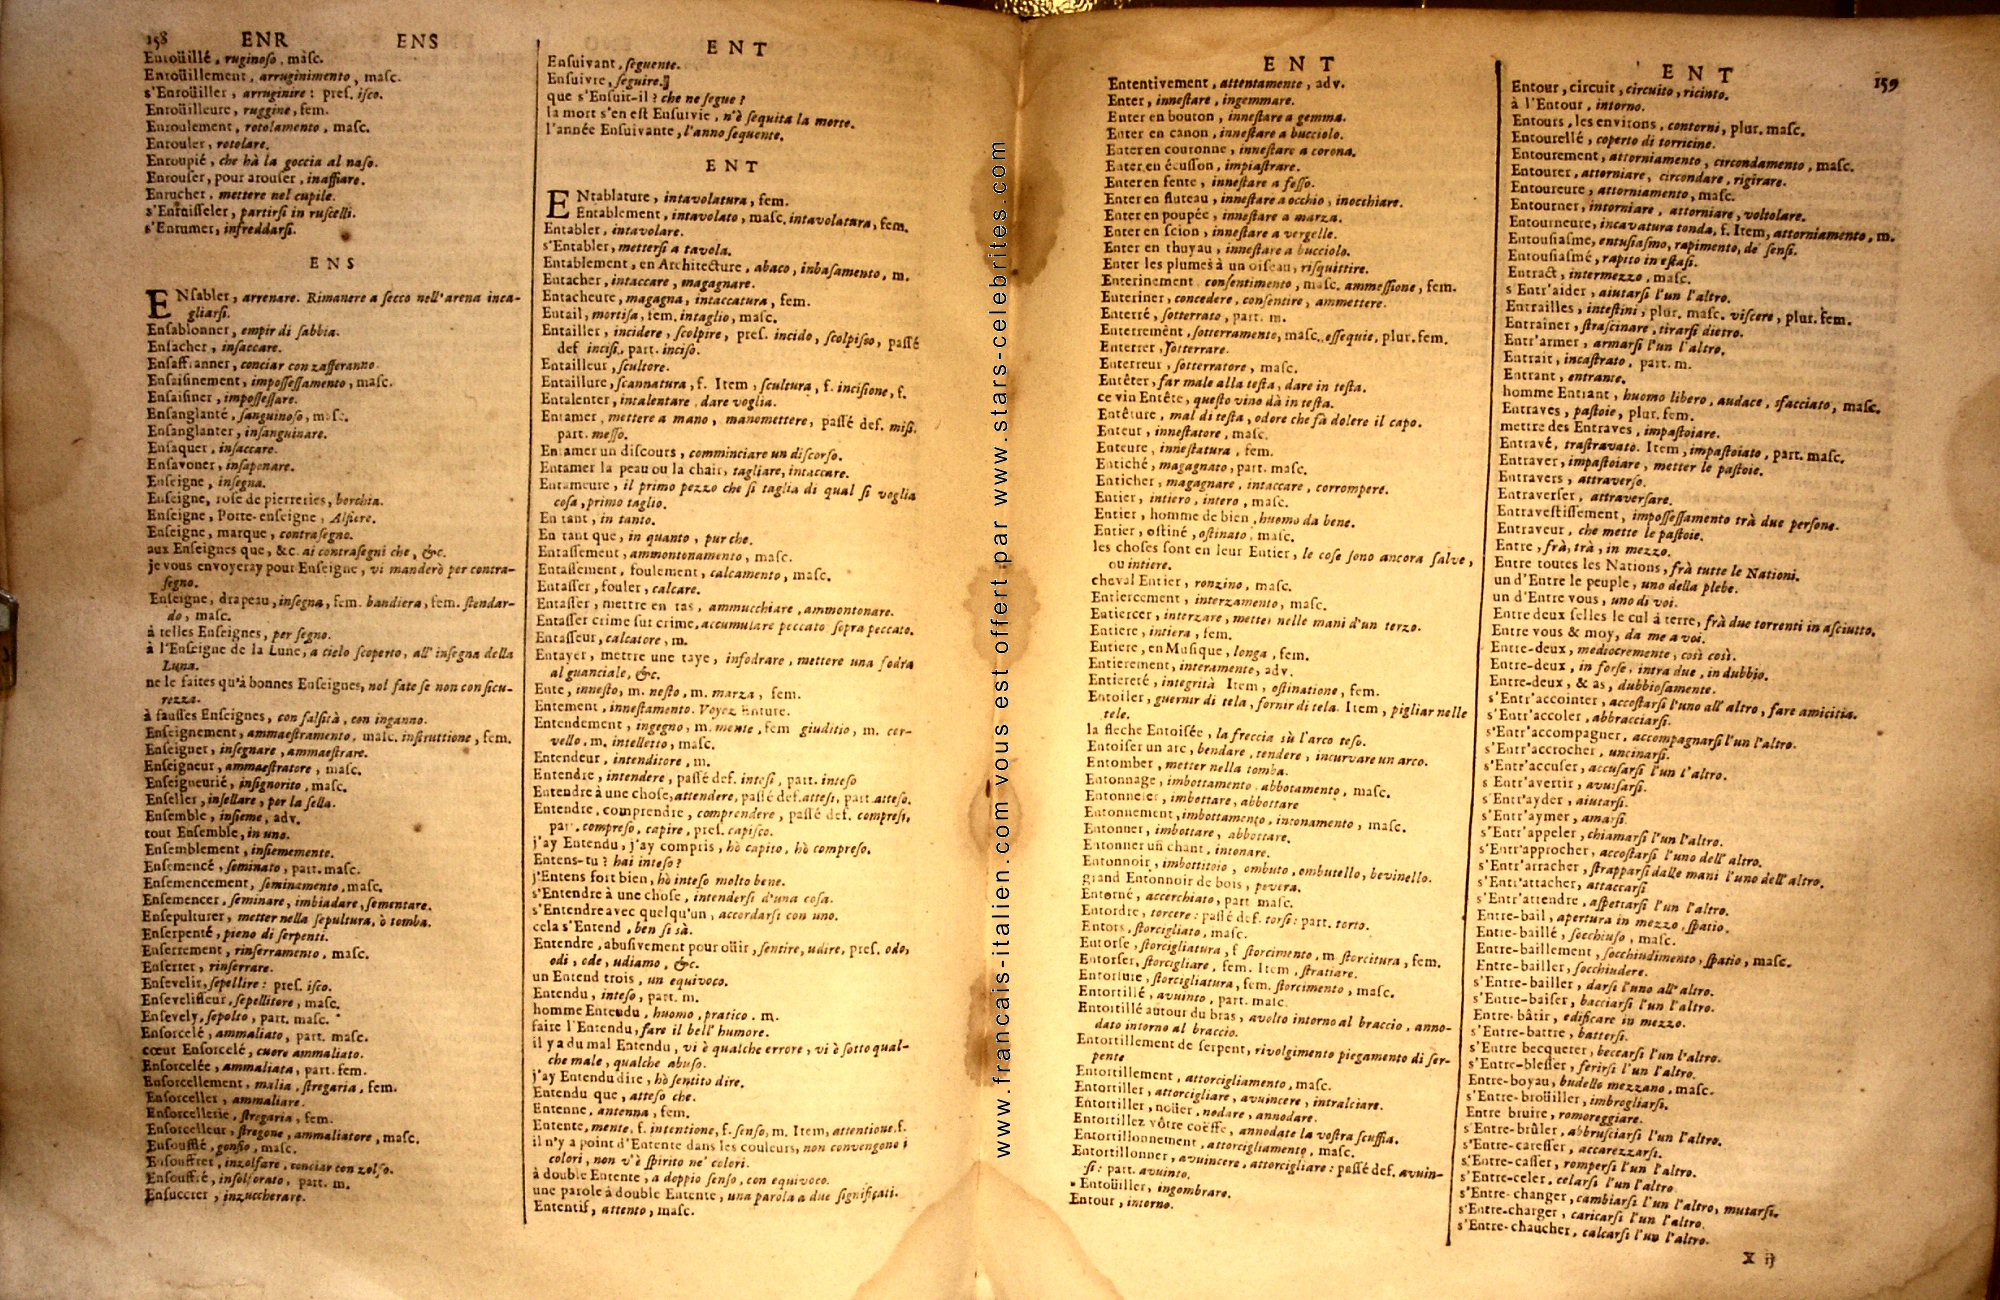 158 ENR ENS
Enroüillé, ruginoso, masc.
Enroüillement, arruginimento, masc.
s'Enroüiller, arruginire: pres. isco.
Enroüilleure, ruggine, fem.
Enroulement, rotolamento, masc.
Enrouler, rotolare.
Enroupié, che hà la goccia al naso.
Enrouser, pour arouser, inaffiare.
Enrucher, mettere nel cupile.
s'Enruisseler, partirsi in ruscelli.
s'Enrumer, infreddarsi.
ENS
ENsabler, arrenare. Rimanere a secco nell'arena inca-
gliarsi.
Ensablonner, empir di sabbia.
Ensacher, insaccare.
Ensaffranner, conciar con zafferanno.
Ensaisinement, impossessamento, masc.
Ensaisiner, impossessare.
Ensanglanté, sanguinoso, masc.
Ensanglanter, insanguinare.
Ensaquer, insaccare.
Ensavoner, insaponare.
Enseigne, insegna.
Enseigne, rose de pierreries, borchia.
Enseigne, Porte-enseigne, Alfiere.
Enseigne, marque, contrasegno.
aux Enseignes que, &c. ai contrasegni che, &c.
je vous envoyeray pour Enseigne, vi manderò per contra-
segno.
Enseigne, drapeau, insegna, fem. bandiera, fem. stendar-
do, masc.
à telles Enseignes, per segno.
à l'Enseigne de la Lune, a cielo scoperto, all'insegna della
Luna.
ne le faites qu'à bonnes Enseignes, nol fate se non con sicu-
rezza.
à fausses Enseignes, con falsità, con inganno.
Enseignement, ammaestramento, masc. instruttione, fem.
Enseigner, insegnare, ammaestrare.
Enseigneur, ammaestratore, masc.
Enseigneurié, insignorito, masc.
Enseller, insellare, per la sella.
Ensemble, insieme, adv.
tout Ensemble, in uno.
Ensemblement, insiememente.
Ensemencé, seminato, part. masc.
Ensemencement, seminamento, masc.
Ensemencer, seminare, imbiadare, sementare.
Ensepulturer, metter nella sepultura, ò tomba.
Enserpenté, pieno di serpenti.
Enserrement, rinserramento, masc.
Enserrer, rinserrare.
Ensevelir, sepellire: pres. isco.
Ensevelisseur, sepellitore, masc.
Ensevely, sepolto, part. masc.
Ensorcelé, ammaliato, part. masc.
cœur Ensorcelé, cuore ammaliato.
Ensorcelée, ammaliata, part. fem.
Ensorcellement, malia, stregaria, fem.
Ensorceller, ammaliare.
Ensorcellerie, stregaria, fem.
Ensorcelleur, stregone, ammaliatore, masc.
Ensoufflé, gonfio, masc.
Ensouffrer, inzolfare, conciar con zolfo.
Ensouffré, insolforato, part. m.
Ensuccrer, inzuccherare.
ENT
Ensuivant, seguente.
Ensuivre, seguire.
que s'Ensuit-il? che ne segue?
la mort s'en est Ensuivie, n'è sequita la morte.
l'année Ensuivante, l'anno sequente.
ENT
ENtablature, intavolatura, fem.
Entablement, intavolato, masc. intavolatura, fem.
Entabler, intavolare.
s'Entabler, mettersi a tavola.
Entablement, en Architecture, abaco, inbasamento, m.
Entacher, intaccare, magagnare.
Entacheure, magagna, intaccatura, fem.
Entail, mortisa, fem. intaglio, masc.
Entailler, incidere, scolpire, pres. incido, scolpisco, passé
def. incisi, part. inciso.
Entailleur, scultore.
Entaillure, scannatura, f. Item, scultura, f. incisione, f.
Entalenter, intalentare, dare voglia.
Entamer, mettere a mano, manomettere, passé def. misi.
part. messo.
Entamer un discours, comminciare un discorso.
Entamer la peau ou la chair, tagliare, intaccare.
Entameure, il primo pezzo che si taglia di qual si voglia
cosa, primo taglio.
En tant, in tanto.
En tant que, in quanto, pur che.
Entassement, ammontonamento, masc.
Entassement, foulement, calcamento, masc.
Entasser, fouler, calcare.
Entasser, mettre en tas, ammucchiare, ammontonare.
Entasser crime sur crime, accumulare peccato sopra peccato.
Entasseur, calcatore, m.
Entayer, mettre une taye, infodrare, mettere una fodra
al guanciale, &c.
Ente, innesto, m. nesto, m. marza, fem.
Entement, innestamento. Voyez Enture.
Entendement, ingegno, m. mente, fem giuditio, m. cer-
vello, m. intelletto, masc.
Entendeur, intenditore, m.
Entendre, intendere, passé def. intesi, part. inteso
Entendre à une chose, attendere, passé def. attesi, part. atteso.
Entendre, comprendre, comprendere, passé def. compresi,
par. compreso, capire, pres. capisco.
j'ay Entendu, j'ay compris, hò capito, hò compreso.
Entens-tu? hai inteso?
j'Entens fort bien, hò inteso molto bene.
s'Entendre à une chose, intendersi d'una cosa.
s'Entendre avec quelqu'un, accordarsi con uno.
cela s'Entend, ben si sà.
Entendre, abusivement pour oüir, sentire, udire, pres. odo,
odi, ode, udiamo, &c.
un Entend trois, un equivoco.
Entendu, inteso, part. m.
homme Entendu, huomo, pratico. m.
faire l'Entendu, fare il bell'humore.
il y a du mal Entendu, vi è qualche errore, vi è sotto qual-
che male, qualche abuso.
j'ay Entendu dire, hò sentito dire.
Entendu que, atteso che.
Entenne, antenna, fem.
Entente, mente, f. intentione, f. senso, m. Item, attentione, f.
il n'y a point d'Entente dans les couleurs, non convengono i
colori, non v'è spirito ne' colori.
à double Entente, a doppio senso, con equivoco.
une parole à double Entente, una parola a due significati.
Ententif, attento, masc.
www.francais-italien.com vous est offert par www.stars-celebrites.com
ENT
Ententivement, attentamente, adv.
Enter, innestare, ingemmare.
Enter en bouton, innestare a gemma.
Enter en canon, innestare a bucciolo.
Enter en couronne, innestare a corona.
Enter en écusson, impiastrare.
Enter en fente, innestare a fesso.
Enter en fluteau, innestare a occhio, inocchiare.
Enter en poupée, innestare a marza.
Enter en scion, innestare a vergelle.
Enter en thuyau, innestare a bucciolo.
Enter les plumes à un oiseau, risquittire.
Enterinement, consentimento, masc. ammessione, fem.
Enteriner, concedere, consentire, ammettere.
Enterré, sotterrato, part. m.
Enterrement, sotterramento, masc. essequie, plur. fem.
Enterrer, sotterrare.
Enterreur, sotterratore, masc.
Entêter, far male alla testa, dare in testa.
ce vin Entête, questo vino dà in testa.
Entêture, mal di testa, odore che fà dolere il capo.
Enteur, innestatore, masc.
Enteure, innestatura, fem.
Entiché, magagnato, part. masc.
Enticher, magagnare, intaccare, corrompere.
Entier, intiero, intero, masc.
Entier, homme de bien, huomo da bene.
Entier, ostiné, ostinato, masc.
les choses sont en leur Entier, le cose sono ancora salve,
ou intiere.
cheval Entier, ronzino, masc.
Entiercement, interzamento, masc.
Entiercer, interzare, metter nelle mani d'un terzo.
Entiere, intiera, fem.
Entiere, en Musique, longa, fem.
Entierement, interamente, adv.
Entiereté, integrità Item, ostinatione, fem.
Entoiler, guernir di tela, fornir di tela. Item, pigliar nelle
tele.
la fleche Entoisée, la freccia sù l'arco teso.
Entoiser un arc, bendare, tendere, incurvare un arco.
Entomber, metter nella tomba.
Entonnage, imbottamento, abbotamento, masc.
Entonneler, imbottare, abbottare
Entonnement, imbottamento, intonamento, masc.
Entonner, imbottare, abbottare.
Entonner un chant, intonare.
Entonnoir, imbottitoio, ombuto, ombutello, bevinello.
grand Entonnoir de bois, pevera.
Entorné, accerchiato, part masc.
Entordre, torcere: passé def. torsi: part. torto.
Entors, storcigliato, masc.
Entorse, storcigliatura, f storcimento, m storcitura, fem.
Entorser, storcigliare, fem. Item, stratiare.
Entorsure, storcigliatura, fem. storcimento, masc.
Entortillé, avuinto, part. masc.
Entortillé autour du bras, avolto intorno al braccio, anno-
dato intorno al braccio.
Entortillement de serpent, rivolgimento piegamento di ser-
pente
Entortillement, attorcigliamento, masc.
Entortiller, attorcigliare, avuincere, intralciare.
Entortiller, noüer, nodare, annodare.
Entortillez vôtre coëffe, annodate la vostra scuffia.
Entortillonnement, attorcigliamento, masc.
Entortillonner, avuincere, attorcigliare: passé def. avuin-
si: part. avuinto.
Entoüiller, ingombrare.
Entour, intorno.
ENT 159
Entour, circuit, circuito, ricinto.
à l'Entour, intorno.
Entours, les environs, contorni, plur. masc.
Entourellé, coperto di torricine.
Entourement, attorniamento, circondamento, masc.
Entourer, attorniare, circondare, rigirare.
Entoureure, attorniamento, masc.
Entourner, intorniare, attorniare, voltolare.
Entourneure, incavatura tonda, f. Item, attorniamento, m.
Entousiasme, entusiasmo, rapimento, de' sensi.
Entousiasmé, rapito in estasi.
Entract, intermezzo, masc.
s Entr'aider, aiutarsi l'un l'altro.
Entrailles, intestini, plur. masc. viscere, plur. fem.
Entrainer, strascinare, tirarsi dietro.
Entr'armer, armarsi l'un l'altro.
Entrait, incastrato, part. m.
Entrant, entrante.
homme Entrant, huomo libero, audace, sfacciato, masc.
Entraves, pastoie, plur. fem.
mettre des Entraves, impastoiare.
Entravé, trastravato. Item, impastoiato, part. masc.
Entraver, impastoiare, metter le pastoie.
Entravers, attraverso.
Entraverser, attraversare.
Entravestissement, impossessamento trà due persone.
Entraveur, che mette le pastoie.
Entre, frà, trà, in mezzo.
Entre toutes les Nations, frà tutte le Nationi.
un d'Entre le peuple, uno della plebe.
un d'Entre vous, uno di voi.
Entre deux selles le cul à terre, frà due torrenti in asciutto.
Entre vous & moy, da me a voi.
Entre-deux, mediocremente, così così.
Entre-deux, in forse, intra due, in dubbio.
Entre-deux, & as, dubbiosamente.
s'Entr'accointer, accostarsi l'uno all'altro, fare amicitia.
s'Entr'accoler, abbracciarsi.
s'Entr'accompagner, accompagnarsi l'un l'altro.
s'Entr'accrocher, uncinarsi.
s'Entr'accuser, accusarsi l'un l'altro.
s'Entr'avertir, avuisarsi.
s'Entr'ayder, aiutarsi.
s'Entr'aymer, amarsi.
s'Entr'appeler, chiamarsi l'un l'altro.
s'Entr'approcher, accostarsi l'uno dell'altro.
s'Entr'arracher, strapparsi dalle mani l'uno dell'altro.
s'Entr'attacher, attaccarsi
s'Entr'attendre, aspettarsi l'un l'altro.
Entre-bail, apertura in mezzo, spatio.
Entre-baillé, socchiuso, masc.
Entre-baillement, socchiudimento, spatio, masc.
Entre-bailler, socchiudere.
s'Entre-bailler, darsi l'uno all'altro.
s'Entre-baiser, bacciarsi l'un l'altro.
Entre-bâtir, edificare in mezzo.
s'Entre-battre, battersi.
s'Entre becqueter, beccarsi l'un l'altro.
s'Entre-blesser, ferirsi l'un l'altro.
Entre-boyau, budello mezzano, masc.
s'Entre-broüiller, imbrogliarsi.
Entre bruire, romoreggiare.
s'Entre-brûler, abbrusciarsi l'un l'altro.
s'Entre-caresser, accarezzarsi.
s'Entre-casser, rompersi l'un l'altro.
s'Entre-celer, celarsi l'un l'altro
s'Entre-changer, cambiarsi l'un l'altro, mutarsi.
s'Entre-charger, caricarsi l'un l'altro.
s'Entre-chaucher, calcarsi l'un l'altro.
X ij